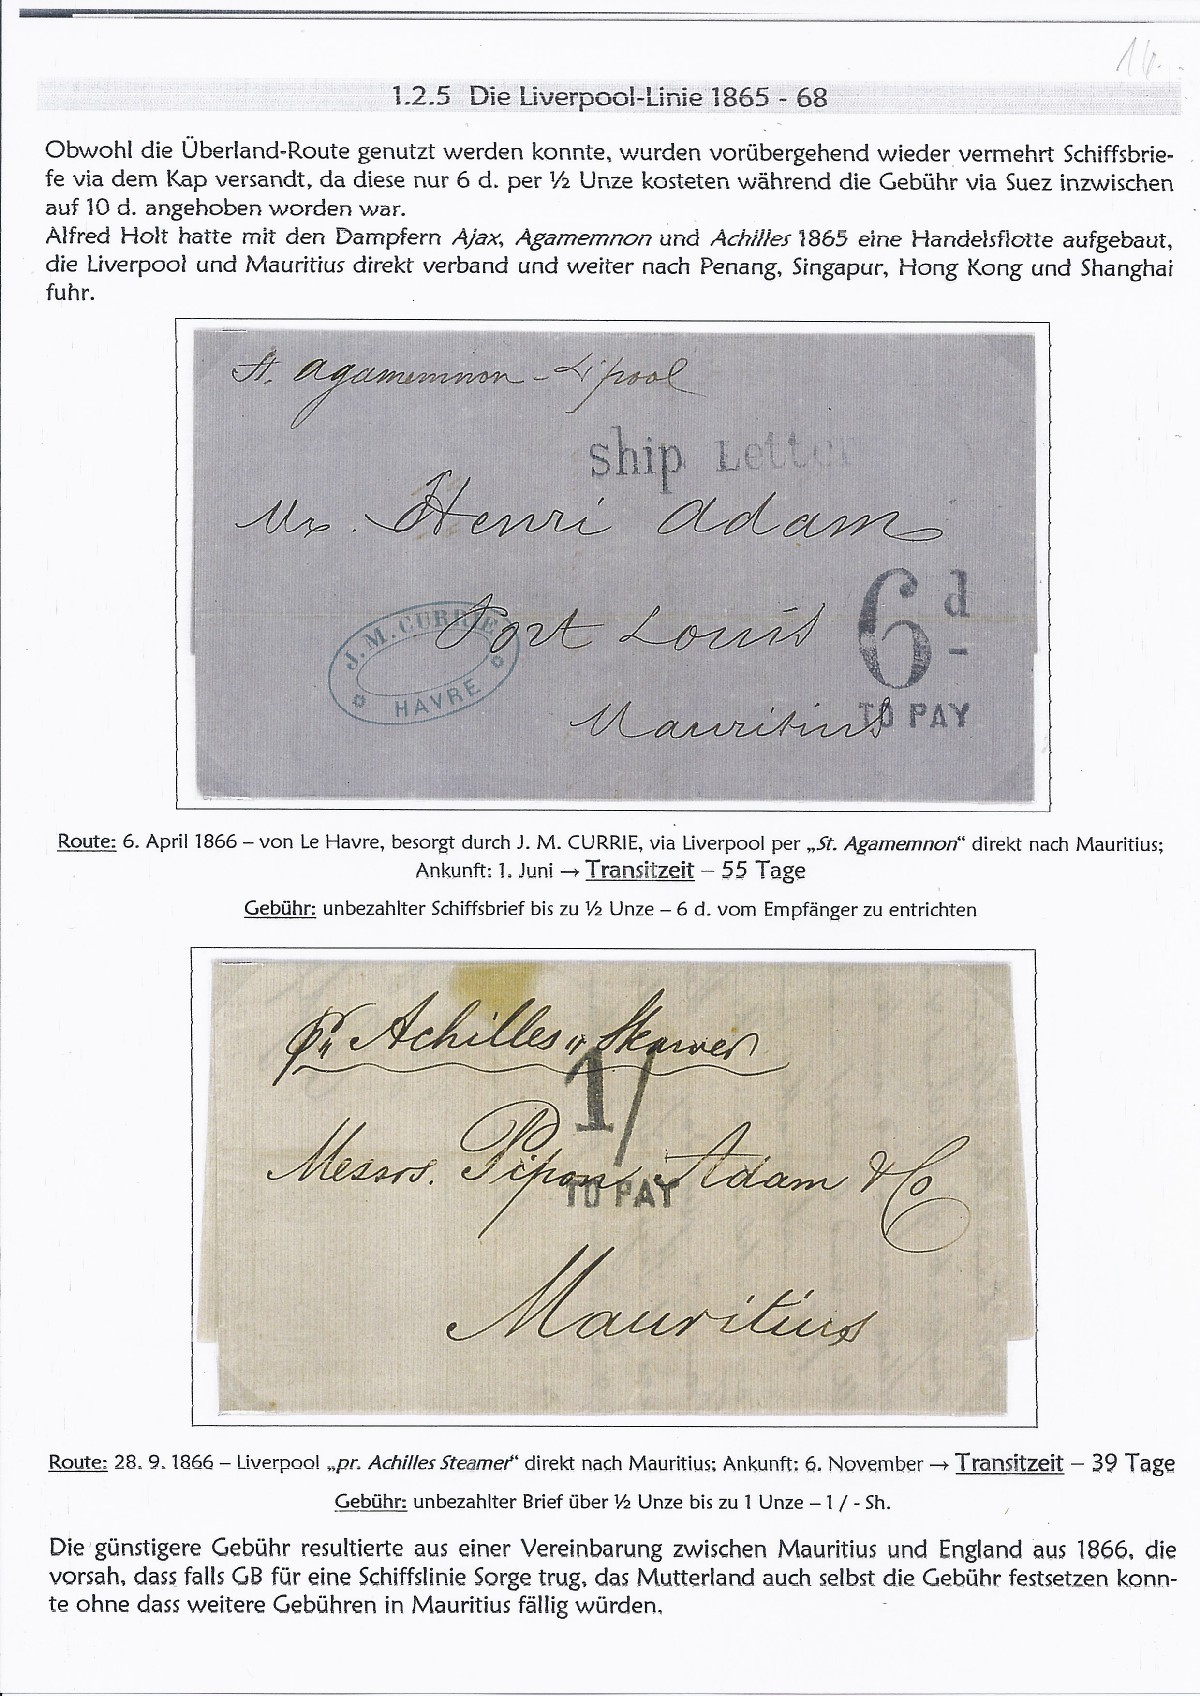 16.
1.2.5 Die Liverpool-Linie 1865 - 68
Obwohl die Überland-Route genutzt werden konnte, wurden vorübergehend wieder vermehrt Schiffsbrie-
fe via dem Kap versandt, da diese nur 6 d. per ½ Unze kosteten während die Gebühr via Suez inzwischen
auf 10 d. angehoben worden war.
Alfred Holt hatte mit den Dampfern Ajax, Agamemnon und Achilles 1865 eine Handelsflotte aufgebaut,
die Liverpool und Mauritius direkt verband und weiter nach Penang, Singapur, Hong Kong und Shanghai
fuhr.
St. Agamemnon - L'pool
Ship Letter
Mr. Henri Adam
6d
Port Louis
J. M. CURRIE
HAVRE
Mauritius
TO PAY
Route: 6. April 1866 – von Le Havre, besorgt durch J. M. CURRIE, via Liverpool per „St. Agamemnon“ direkt nach Mauritius;
Ankunft: 1. Juni → Transitzeit – 55 Tage
Gebühr: unbezahlter Schiffsbrief bis zu ½ Unze – 6 d. vom Empfänger zu entrichten
pr Achilles " Steamer
1/
Messrs. Pipon Adam & Co
TO PAY
Mauritius
Route: 28. 9. 1866 – Liverpool „pr. Achilles Steamer“ direkt nach Mauritius; Ankunft: 6. November → Transitzeit – 39 Tage
Gebühr: unbezahlter Brief über ½ Unze bis zu 1 Unze – 1 / - Sh.
Die günstigere Gebühr resultierte aus einer Vereinbarung zwischen Mauritius und England aus 1866, die
vorsah, dass falls GB für eine Schiffslinie Sorge trug, das Mutterland auch selbst die Gebühr festsetzen konn-
te ohne dass weitere Gebühren in Mauritius fällig würden.